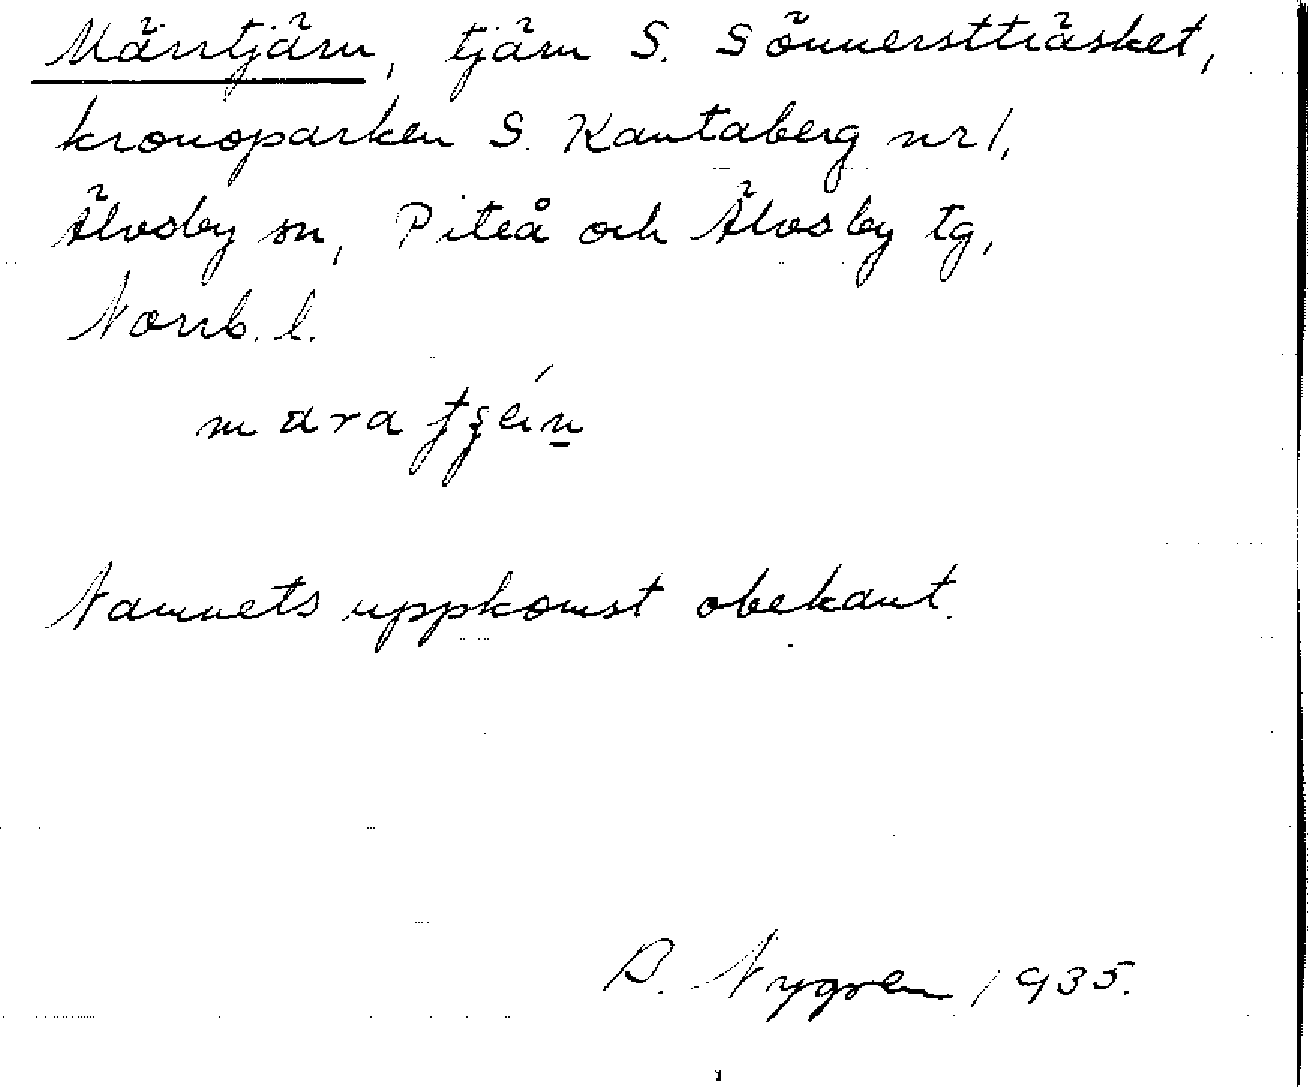 Märrtjärn, tjärn S. Sönnerstträsket,
kronoparken S. Kantaberg nr 1,
Älvsby sn, Piteå och Älvsby tg,
Norrb. l.
Namnets uppkomst obekant.
Nygren 1935.